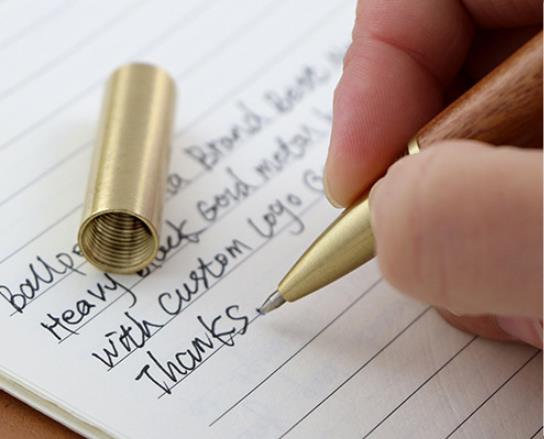 Ballpo Brand Base
Heavy Black Gold metal
with custom logo
Thanks